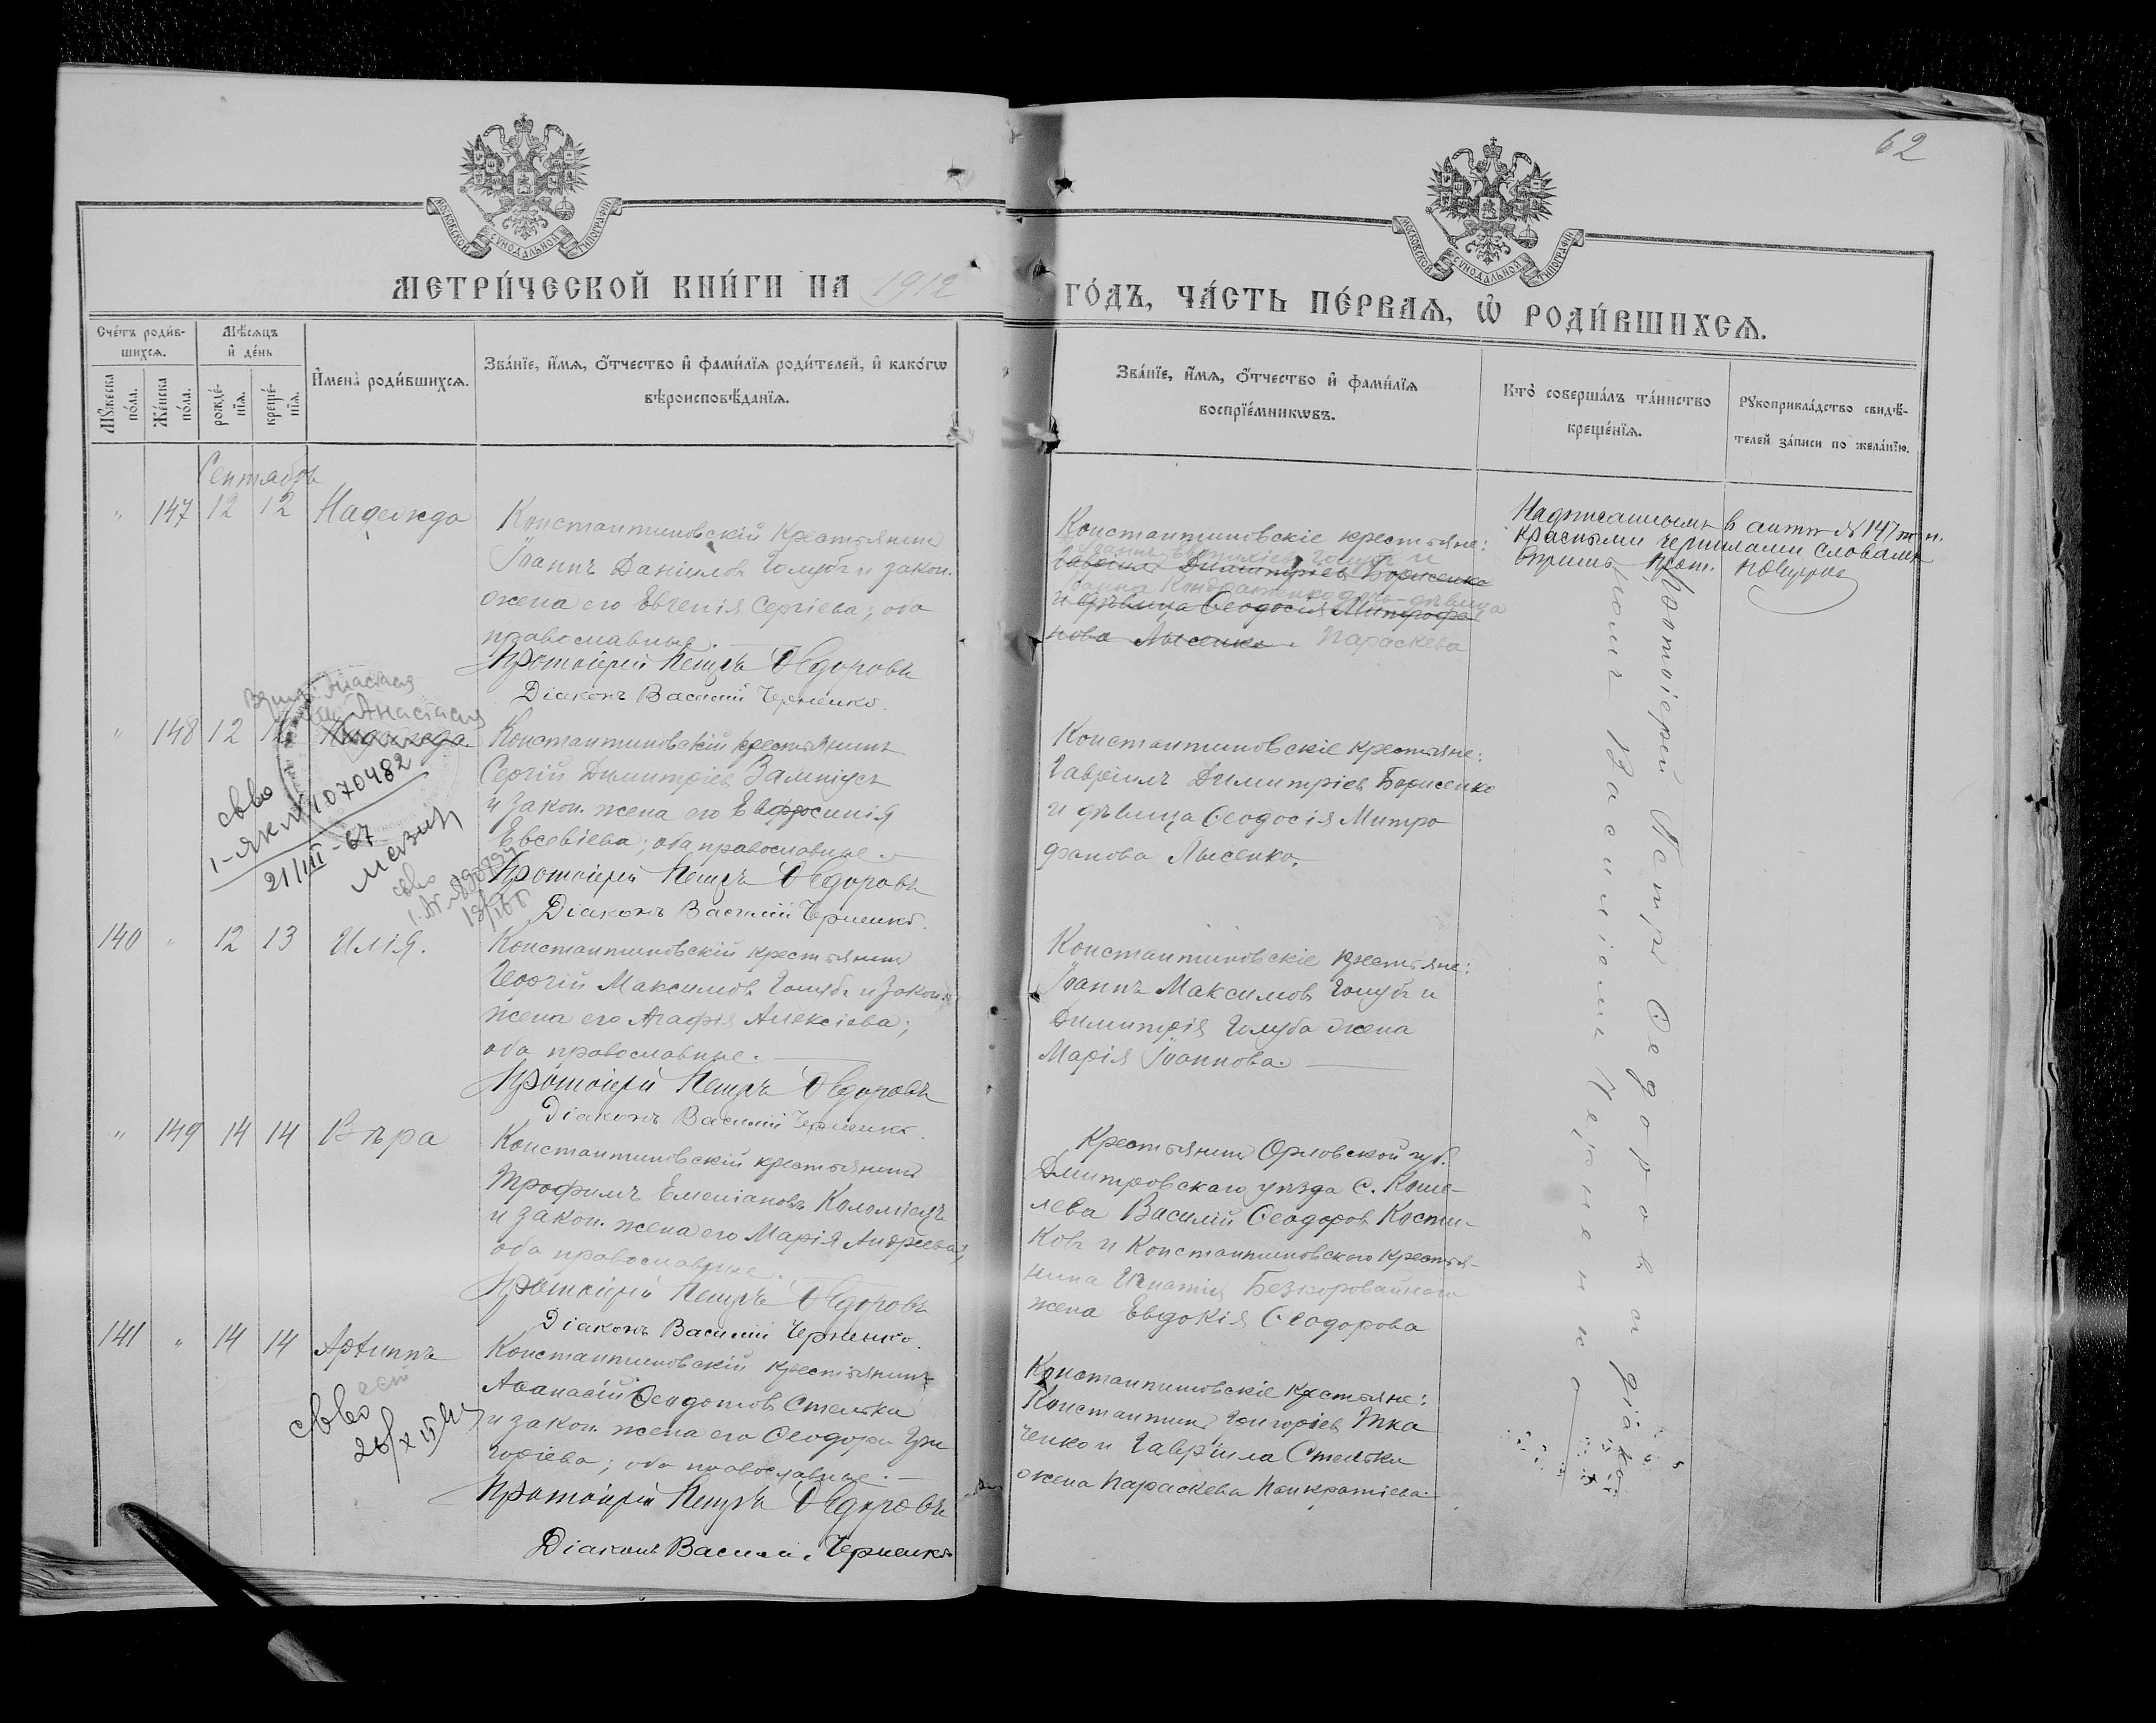 62
МОСКОВСКОЙ СѴНОДАЛЬНОЙ ТИПОГРАФІИ
МОСКОВСКОЙ СѴНОДАЛЬНОЙ ТИПОГРАФІИ
МЕТРИ́ЧЕСКОЙ КНИ́ГИ НА 1912
ГО́ДЪ, ЧА́СТЬ ПЕ́РВАѦ, Ѡ҆ РОДИ́ВШИХСѦ.
Сче́тъ роди́в-
шихсѧ.
Мꙋ́жеска по́ла.
Же́нска по́ла.
Мѣ́сѧцъ
и҆ де́нь
рожде́-
нїѧ.
креще́-
нїѧ.
И҆мена̀ роди́вшихсѧ.
Зва́нїе, и҆́мѧ, ѻ҆́тчество и҆ фами́лїѧ роди́телей, и҆ како́гѡ
вѣроисповѣ́данїѧ.
Зва́нїе, и҆́мѧ, ѻ҆́тчество и҆ фами́лїѧ
воспрїе́мникѡвъ.
Кто̀ соверша́лъ та́инство
креще́нїѧ.
Рꙋкоприкла́дство свидѣ́-
телей за́писи по жела́нїю.
Сентябрь
" 147 12 12 Надежда
Константиновскій крестьянинъ
Іоаннъ Даніиловъ Голубъ и закон.
жена его Евгенія Сергіева; оба
православные.
Протоіерей Петръ Ѳедоровъ
Діаконъ Василій Черненко.
Константиновскіе крестьяне:
Гавріилъ Димитріевъ Борисенко
и дѣвица Ѳеодосія Митрофа
нова Лысенко. Параскева
Надписаннымъ въ актѣ № 147
красными чернилами словамъ
вѣрить Прот.
Анастасія
" 148 12 12 Надежда
Константиновскій крестьянинъ
Сергій Димитріевъ
и закон. жена его Евфросинія
Евсевіева; оба православные.
Протоіерей Петръ Ѳедоровъ
Діаконъ Василій Черненко.
свво
1070482
21/III-67
Константиновскіе крестьяне:
Гавріилъ Димитріевъ Борисенко
и дѣвица Ѳеодосія Митро
фанова Лысенко.
140 " 12 13 Илія.
Константиновскій крестьянинъ
Георгій Максимовъ Голубъ и закон.
жена его Агафія Алексіева;
оба православные.
Протоіерей Петръ Ѳедоровъ
Діаконъ Василій Черненко.
Константиновскіе крестьяне:
Іоаннъ Максимовъ Голубъ и
Димитрія Голуба жена
Марія Іоаннова.
" 149 14 14 Вѣра
Константиновскій крестьянинъ
Трофимъ Емеліановъ Коломіецъ
и закон. жена его Марія Андреева;
оба православные.
Протоіерей Петръ Ѳедоровъ
Діаконъ Василій Черненко.
Крестьянинъ Орловской губ.
Дмитровскаго уѣзда с. Коше-
лева Василій Ѳеодоровъ Кости-
ковъ и Константиновскаго крестья-
нина Игнатія Безкоровайнаго
жена Евдокія Ѳеодорова
141 " 14 14
Константиновскій крестьянинъ
Аѳанасій Ѳеодотовъ Стетька
и закон. жена его Ѳеодора Гри
горіева; оба православные.
Протоіерей Петръ Ѳедоровъ
Діаконъ Василій Черненко
свво
Константиновскіе крестьяне:
Константинъ Григоріевъ Тка
ченко и Гавріила Стетьки
жена Параскева Панкратіева.
Протоіерей Петръ Ѳедоровъ и діа
кономъ Василіемъ Черненко